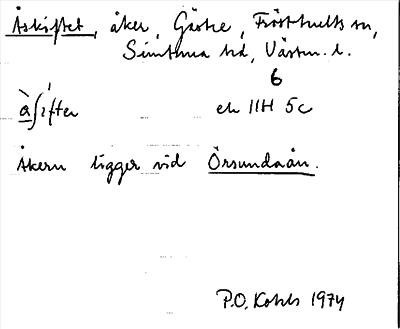 Åskiftet, åker, Gästre, Frösthults sn,
Simtuna hd, Västm. l.
6
å̀ʃífter ek 11H 5c
Åkern ligger vid Örsundaån.
P.O. Kohls 1974